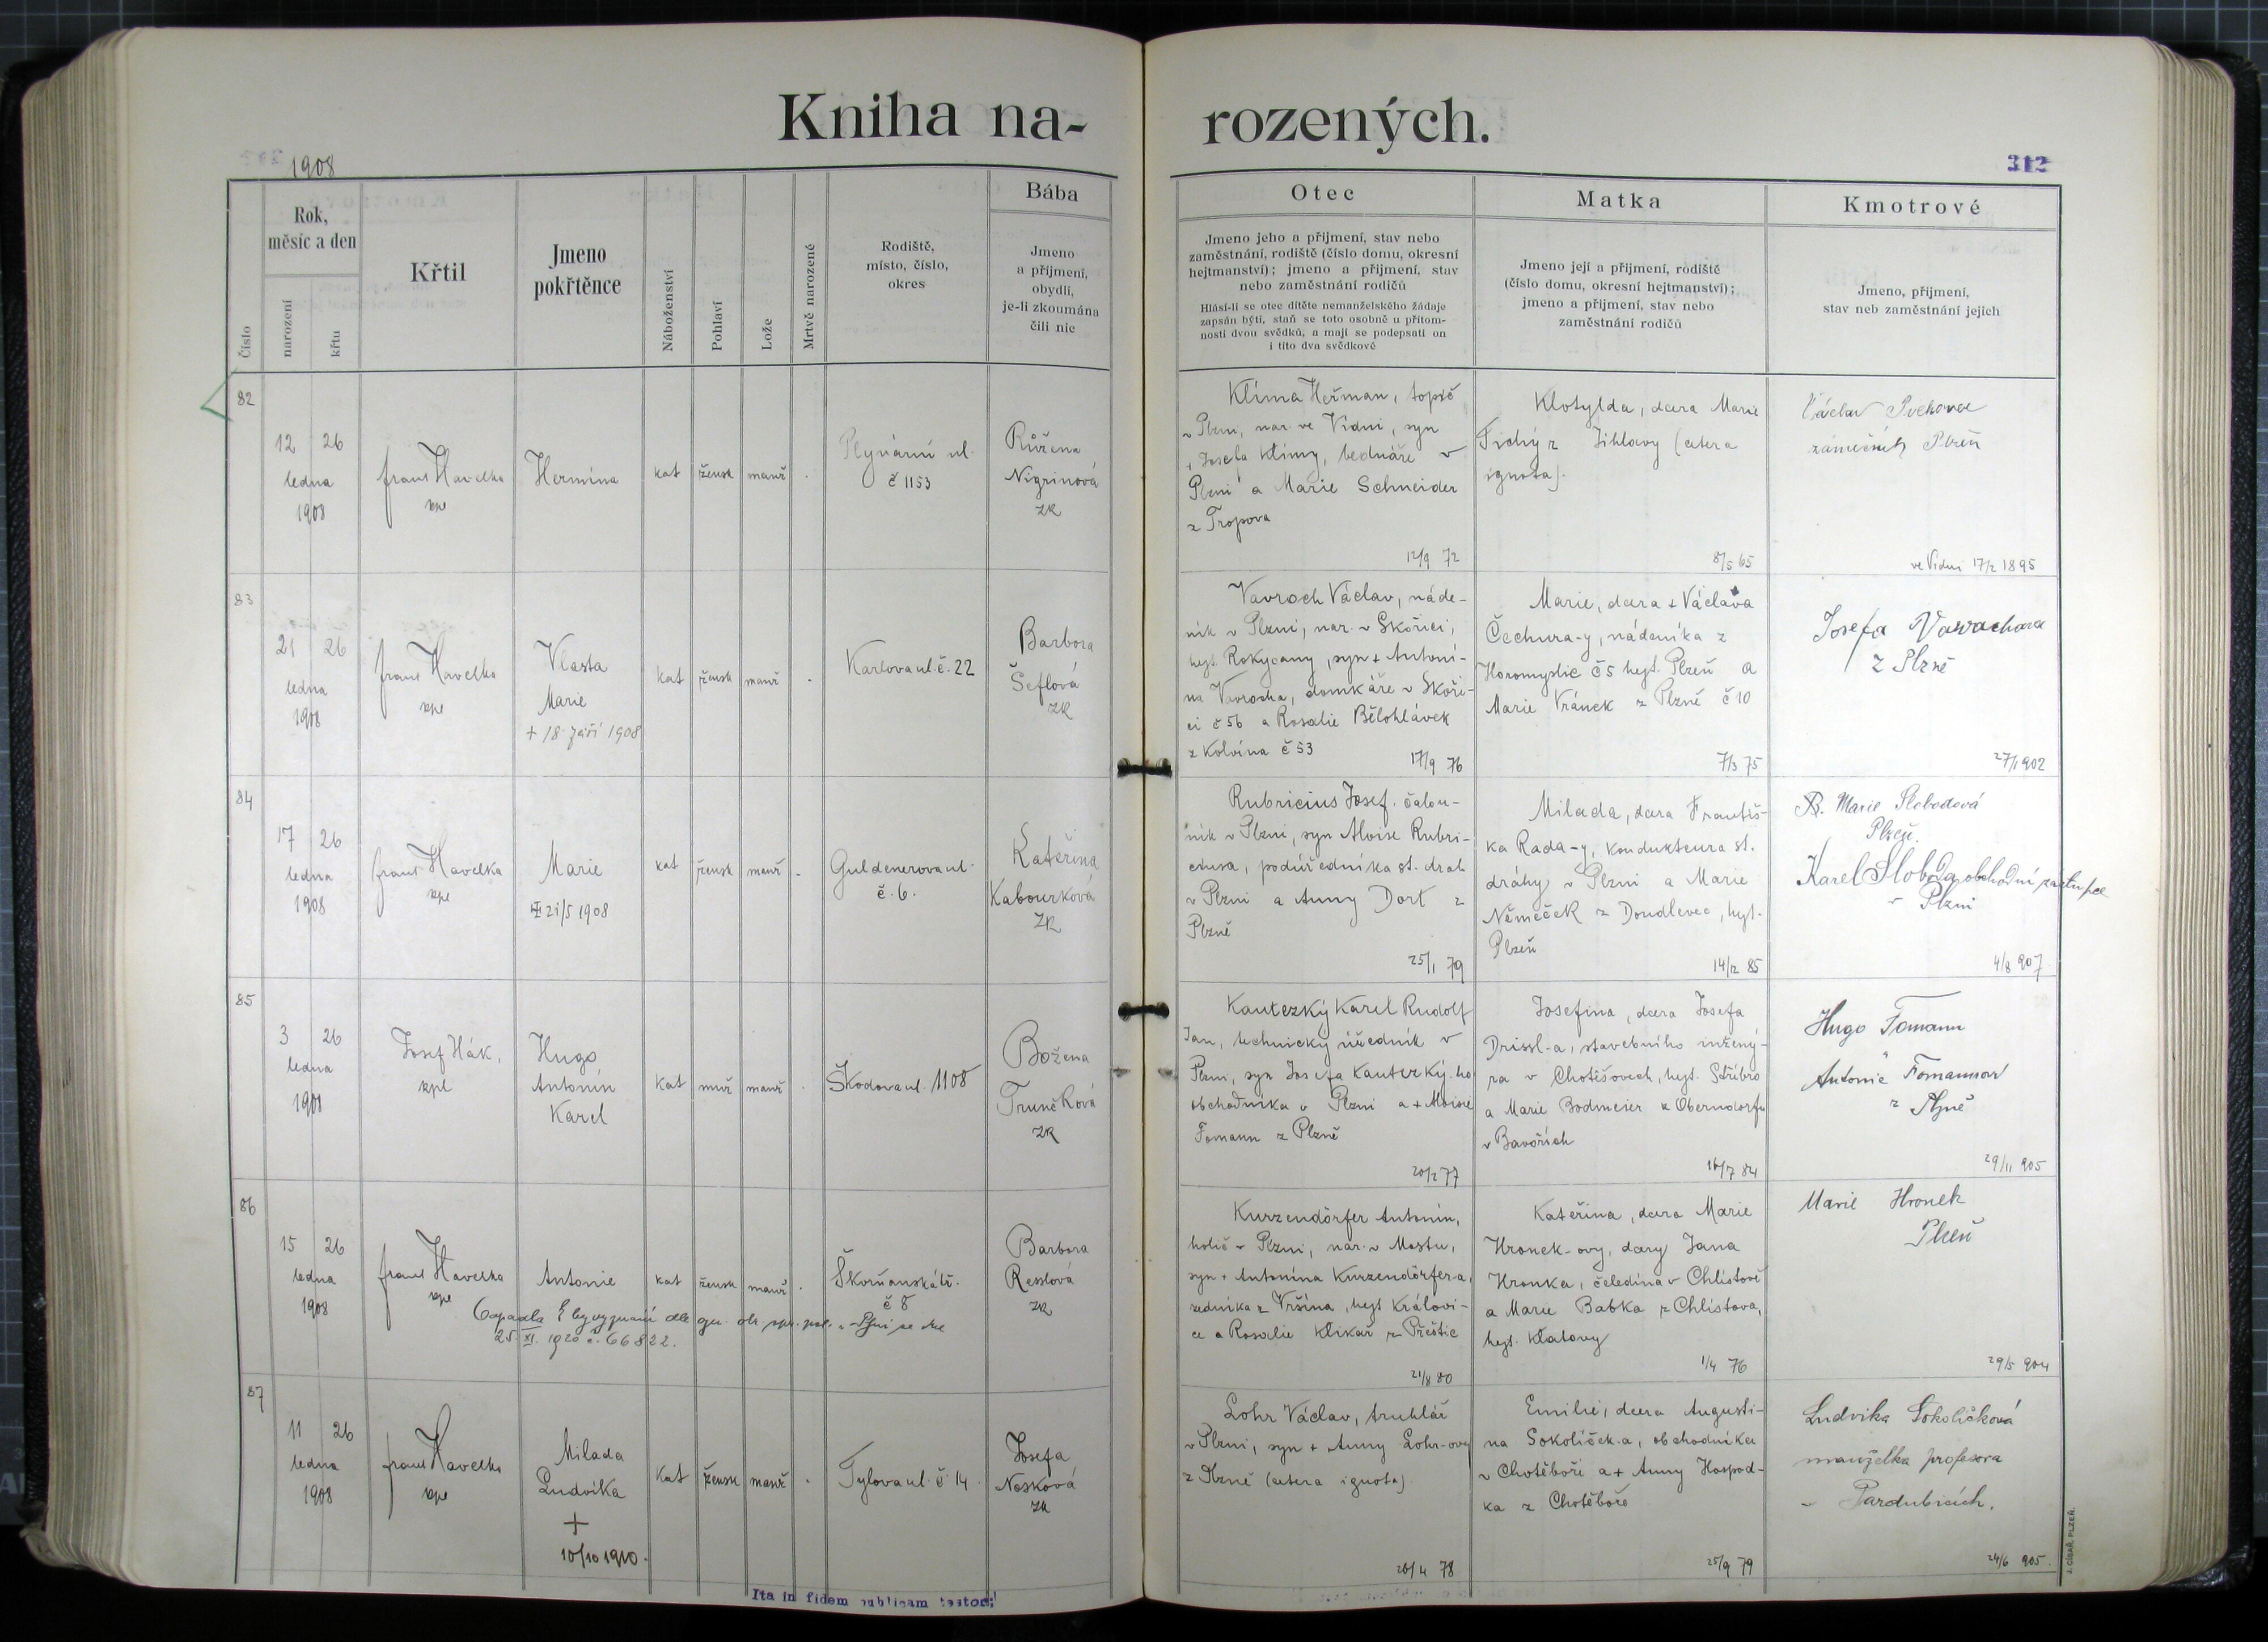 Kniha na-
rozených.
1908
312
Číslo
Rok,
měsíc a den
narození
křtu
Křtil
Jmeno
pokřtěnce
Náboženství
Pohlaví
Lože
Mrtvě narozené
Rodiště,
místo, číslo,
okres
Bába
Jmeno
a příjmení,
obydlí,
je-li zkoumána
čili nic
Otec
Jmeno jeho a přijmení, stav nebo
zaměstnání, rodiště (číslo domu, okresní
hejtmanství); jmeno a přijmení, stav
nebo zaměstnání rodičů
Hlásí-li se otec dítěte nemanželského žádaje
zapsán býti, staň se toto osobně u přítom-
nosti dvou svědků, a mají se podepsati on
i tito dva svědkové
Matka
Jmeno její a přijmení, rodiště
(číslo domu, okresní hejtmanství);
jmeno a přijmení, stav nebo
zaměstnání rodičů
Kmotrové
Jmeno, přijmení,
stav neb zaměstnání jejich
82
12 26
ledna
1908
Frant Havelka
kpl
Hermina
kat
žensk
manž
Plynární ul.
č 1153
Růžena
Nigrinová
ZK
Klíma Heřman, topič
v Plzni, nar. ve Vídni, syn
+ Josefa Klímy, bednáře v
Plzni a Marie Schneider
z Tropova
12/9 72
Klotylda, dcera Marie
Tichý z Jihlavy (cetera
ignota).
8/5 65
Václav
zámečník Plzeň
ve Vídni 17/2 1895
83
21 26
ledna
1908
Frant Havelka
kpl
Vlasta
Marie
+ 18 září 1908
kat
žensk
manž
Karlova ul. č. 22
Barbora
Šeflová
ZK
Vavroch Václav, náde-
ník v Plzni, nar. v Skořici,
hejt. Rokycany, syn + Antoní-
na Vavrocha, domkáře v Skoři-
ci č 56 a Rosalie Bělohlávek
z Kolvína č 53
17/9 76
Marie, dcera + Václava
Čechura-y, nádeníka z
Horomyslic č 5 hejt. Plzeň a
Marie Vránek z Plzně č 10
7/3 75
Josefa
z Plzně
27/1 902
84
17 26
ledna
1908
Frant Havelka
kpl
Marie
21/5 1908
kat
žensk
manž
Guldenerova ul.
č. 6.
Kateřina
Kabourková
ZK
Rubricius Josef. čalou-
ník v Plzni, syn Aloise Rubri-
ciusa, podúředníka st. drah
v Plzni a Anny Dort z
Plzně
25/1 79
Milada, dcera Františ-
ka Rada-y, kondukteura st.
dráhy v Plzni a Marie
Němeček z Doudlevec, hejt.
Plzeň
14/12 85
Marie Slobodová
Plzeň.
Karel Sloboda obchodní zástupce
v Plzni
4/8 907
85
3 26
ledna
1908
Josef Hák,
kpl
Hugo
Antonín
Karel
kat
muž
manž
Škodova ul. 1108
Božena
Trunčková
ZK
Kautezký Karel Rudolf
Jan, technický úředník v
Plzni, syn Josefa Kautezký-ho
obchodníka v Plzni a + Aloisie
Fomann z Plzně
20/2 77
Josefina, dcera Josefa
Drissl-a, stavebního inžený-
ra v Chotěšovech, hejt. Stříbro
a Marie Bodmeier z Oberndorfu
v Bavořích
16/7 84
Hugo Fomann
Antonie
z Plzně
29/11 905
86
15 26
ledna
1908
Frant Havelka
kpl
Antonie
kat
žensk
manž
Škorňanská tř.
č 8
Barbora
Resslová
ZK
25. XI. 1920 č. 66822.
Kurzendörfer Antonín,
holič v Plzni, nar. v Mostu,
syn + Antonína Kurzendörfer-a,
zedníka z Vršína, hejt Královi-
ce a Rosalie Klikař z Přeštic
21/8 80
Kateřina, dcera Marie
Hronek-ovy, dcery Jana
Hronka, čeledína v Chlístově
a Marie Babka z Chlístova,
hejt. Klatovy
1/4 76
Marie Hronek
Plzeň
29/5 904
87
11 26
ledna
1908
Frant Havelka
kpl
Milada
Ludvika
+
10/10 1910.
kat
žensk
manž
Tylova ul. č 14
Josefa
Nosková
ZK
Lohr Václav, truhlář
v Plzni, syn + Anny Lohr-ovy
z Plzně (cetera ignota)
26/4 78
Emilie, dcera Augusti-
na Sokolíček-a, obchodníka
v Chotěboři a + Anny Hospod-
ka z Chotěboře
25/9 79
Ludvika Sokolíčková
manželka profesora
v Pardubicích.
24/6 905.
Ita in fidem publicam testor:
J. CÍSAŘ, PLZEŇ.